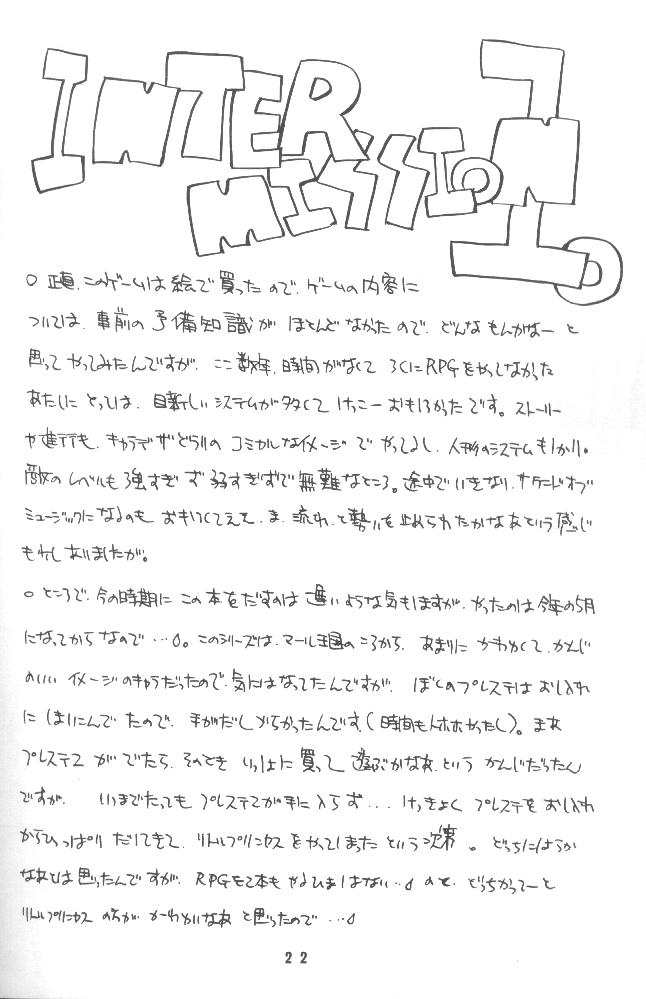 INTERMISSION
○正直、このゲームは絵で買ったので、ゲームの内容に
ついては、事前の予備知識がほとんどなかったので、どんなもんかなーと
思ってやってみたんですが、ここ数年、時間がなくてろくにRPGをやってなかった
あたしにとっては、目新しいシステムが多くてけっこーおもしろかったです。ストーリー
や進行も、キャラデザどうりのコミカルなイメージでやってよし、人形のシステムも
敵のレベルも強すぎず弱すぎずで無難なところ。途中でいきなり、サウンドオブ
ミュージックになるのもおもしろくてええて、ま、流れと勢いを止められたかなあという感じ
もしもありましたが。
○ところで、今の時期にこの本をだすのは遅いような気もしますが、やったのは今年の5月
になってからなので…。このシリーズは、マール王国のころから、あまりにかわいくて、かんじ
のいいイメージのキャラだったので、気にはなってたんですが、ぼくのプレステはおしいれ
にはいってたので、手がだしづらかったんです(時間もなかったし)。まあ
プレステ2がでたら、そのときいっしょに買って遊ぶかなあ、というかんじだったん
ですが、いつまでたってもプレステ2が手に入らず…けっきょくプレステをおしいれ
からひっぱりだしてきて、リトルプリンセスをやってしまったという次第。どっちにしようか
なあとは思ったんですが、RPGを2本もやるひまはない…ので、どっちかってーと
リトルプリンセスの方がかーわいいなあと思ったので…
22